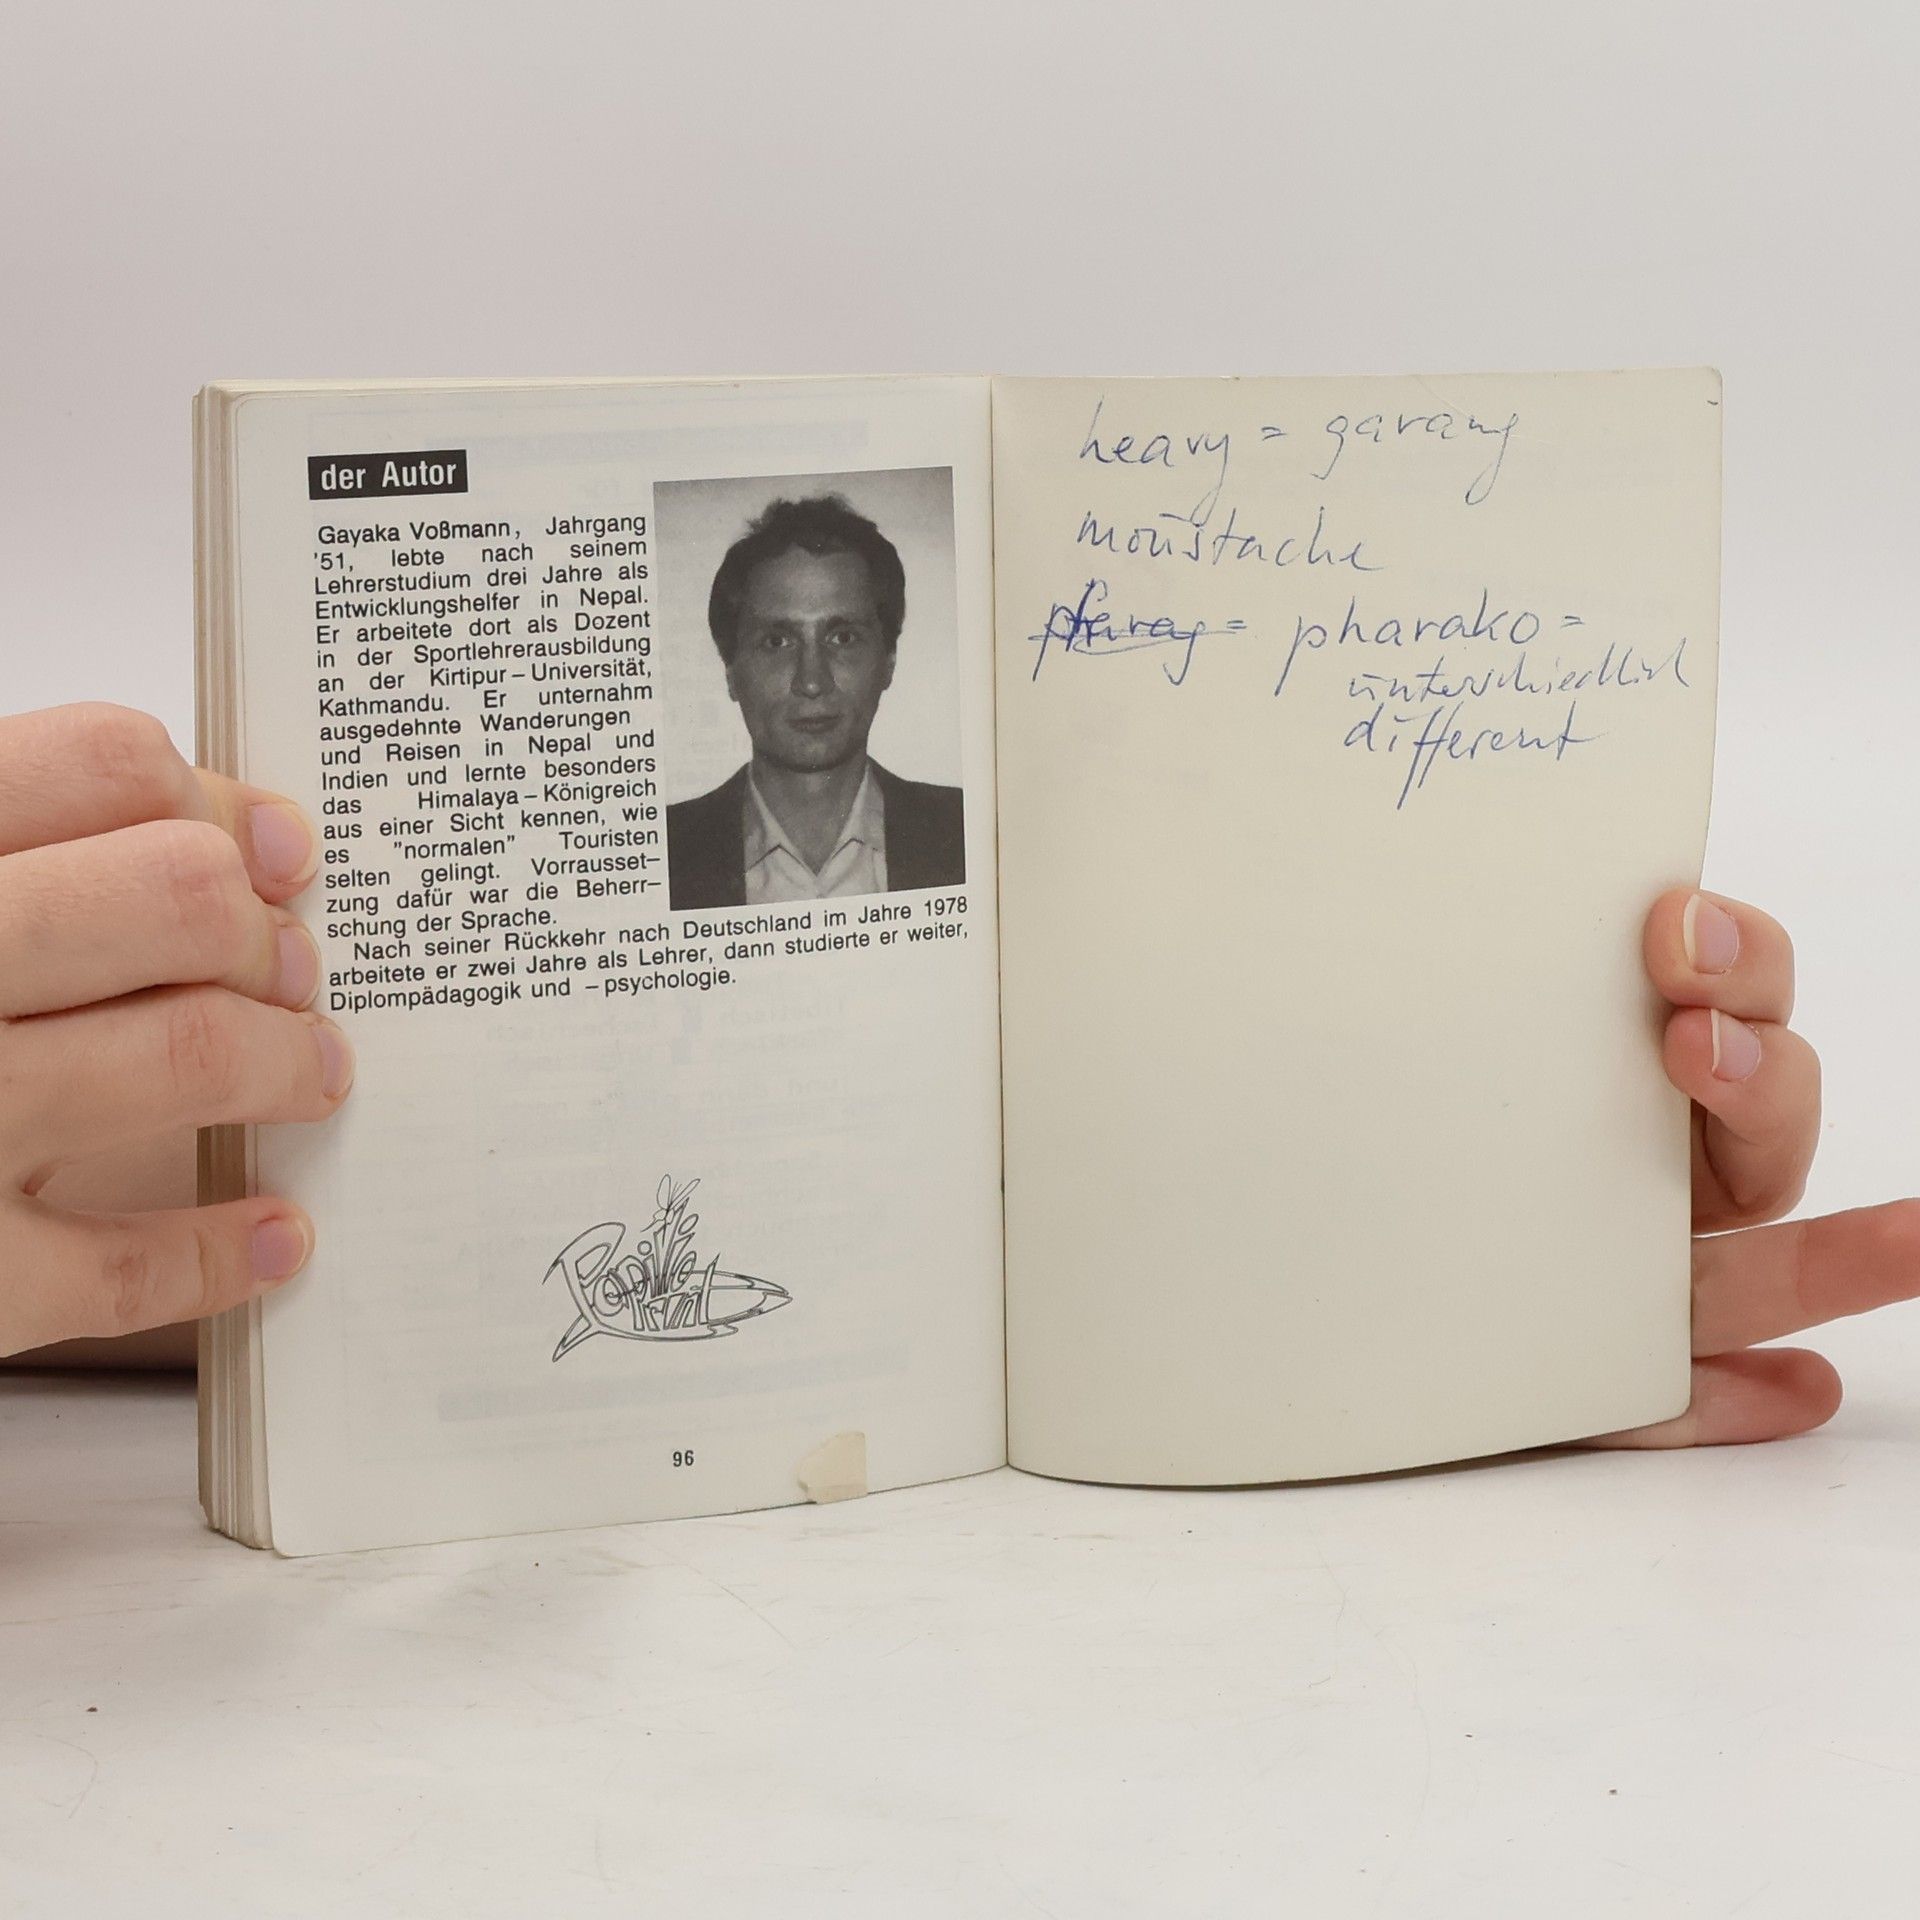 der Autor
Gayaka Voßmann, Jahrgang
'51, lebte nach seinem
Lehrerstudium drei Jahre als
Entwicklungshelfer in Nepal.
Er arbeitete dort als Dozent
in der Sportlehrerausbildung
an der Kirtipur – Universität,
Kathmandu. Er unternahm
ausgedehnte Wanderungen
und Reisen in Nepal und
Indien und lernte besonders
das Himalaya – Königreich
aus einer Sicht kennen, wie
es "normalen" Touristen
selten gelingt. Vorrausset–
zung dafür war die Beherr–
schung der Sprache.
Nach seiner Rückkehr nach Deutschland im Jahre 1978
arbeitete er zwei Jahre als Lehrer, dann studierte er weiter,
Diplompädagogik und – psychologie.
Papillo
Print
96
heavy = garang
moustache
= pharako =
unterschiedlich
different